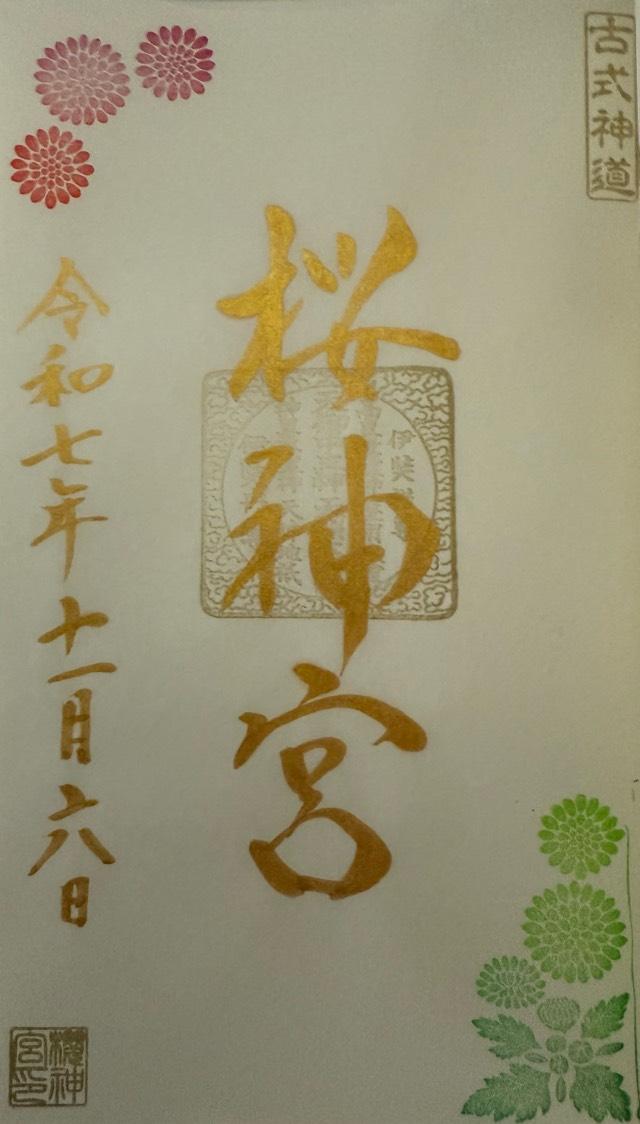 古式神道
桜神宮
令和七年十一月六日
櫻神宮印